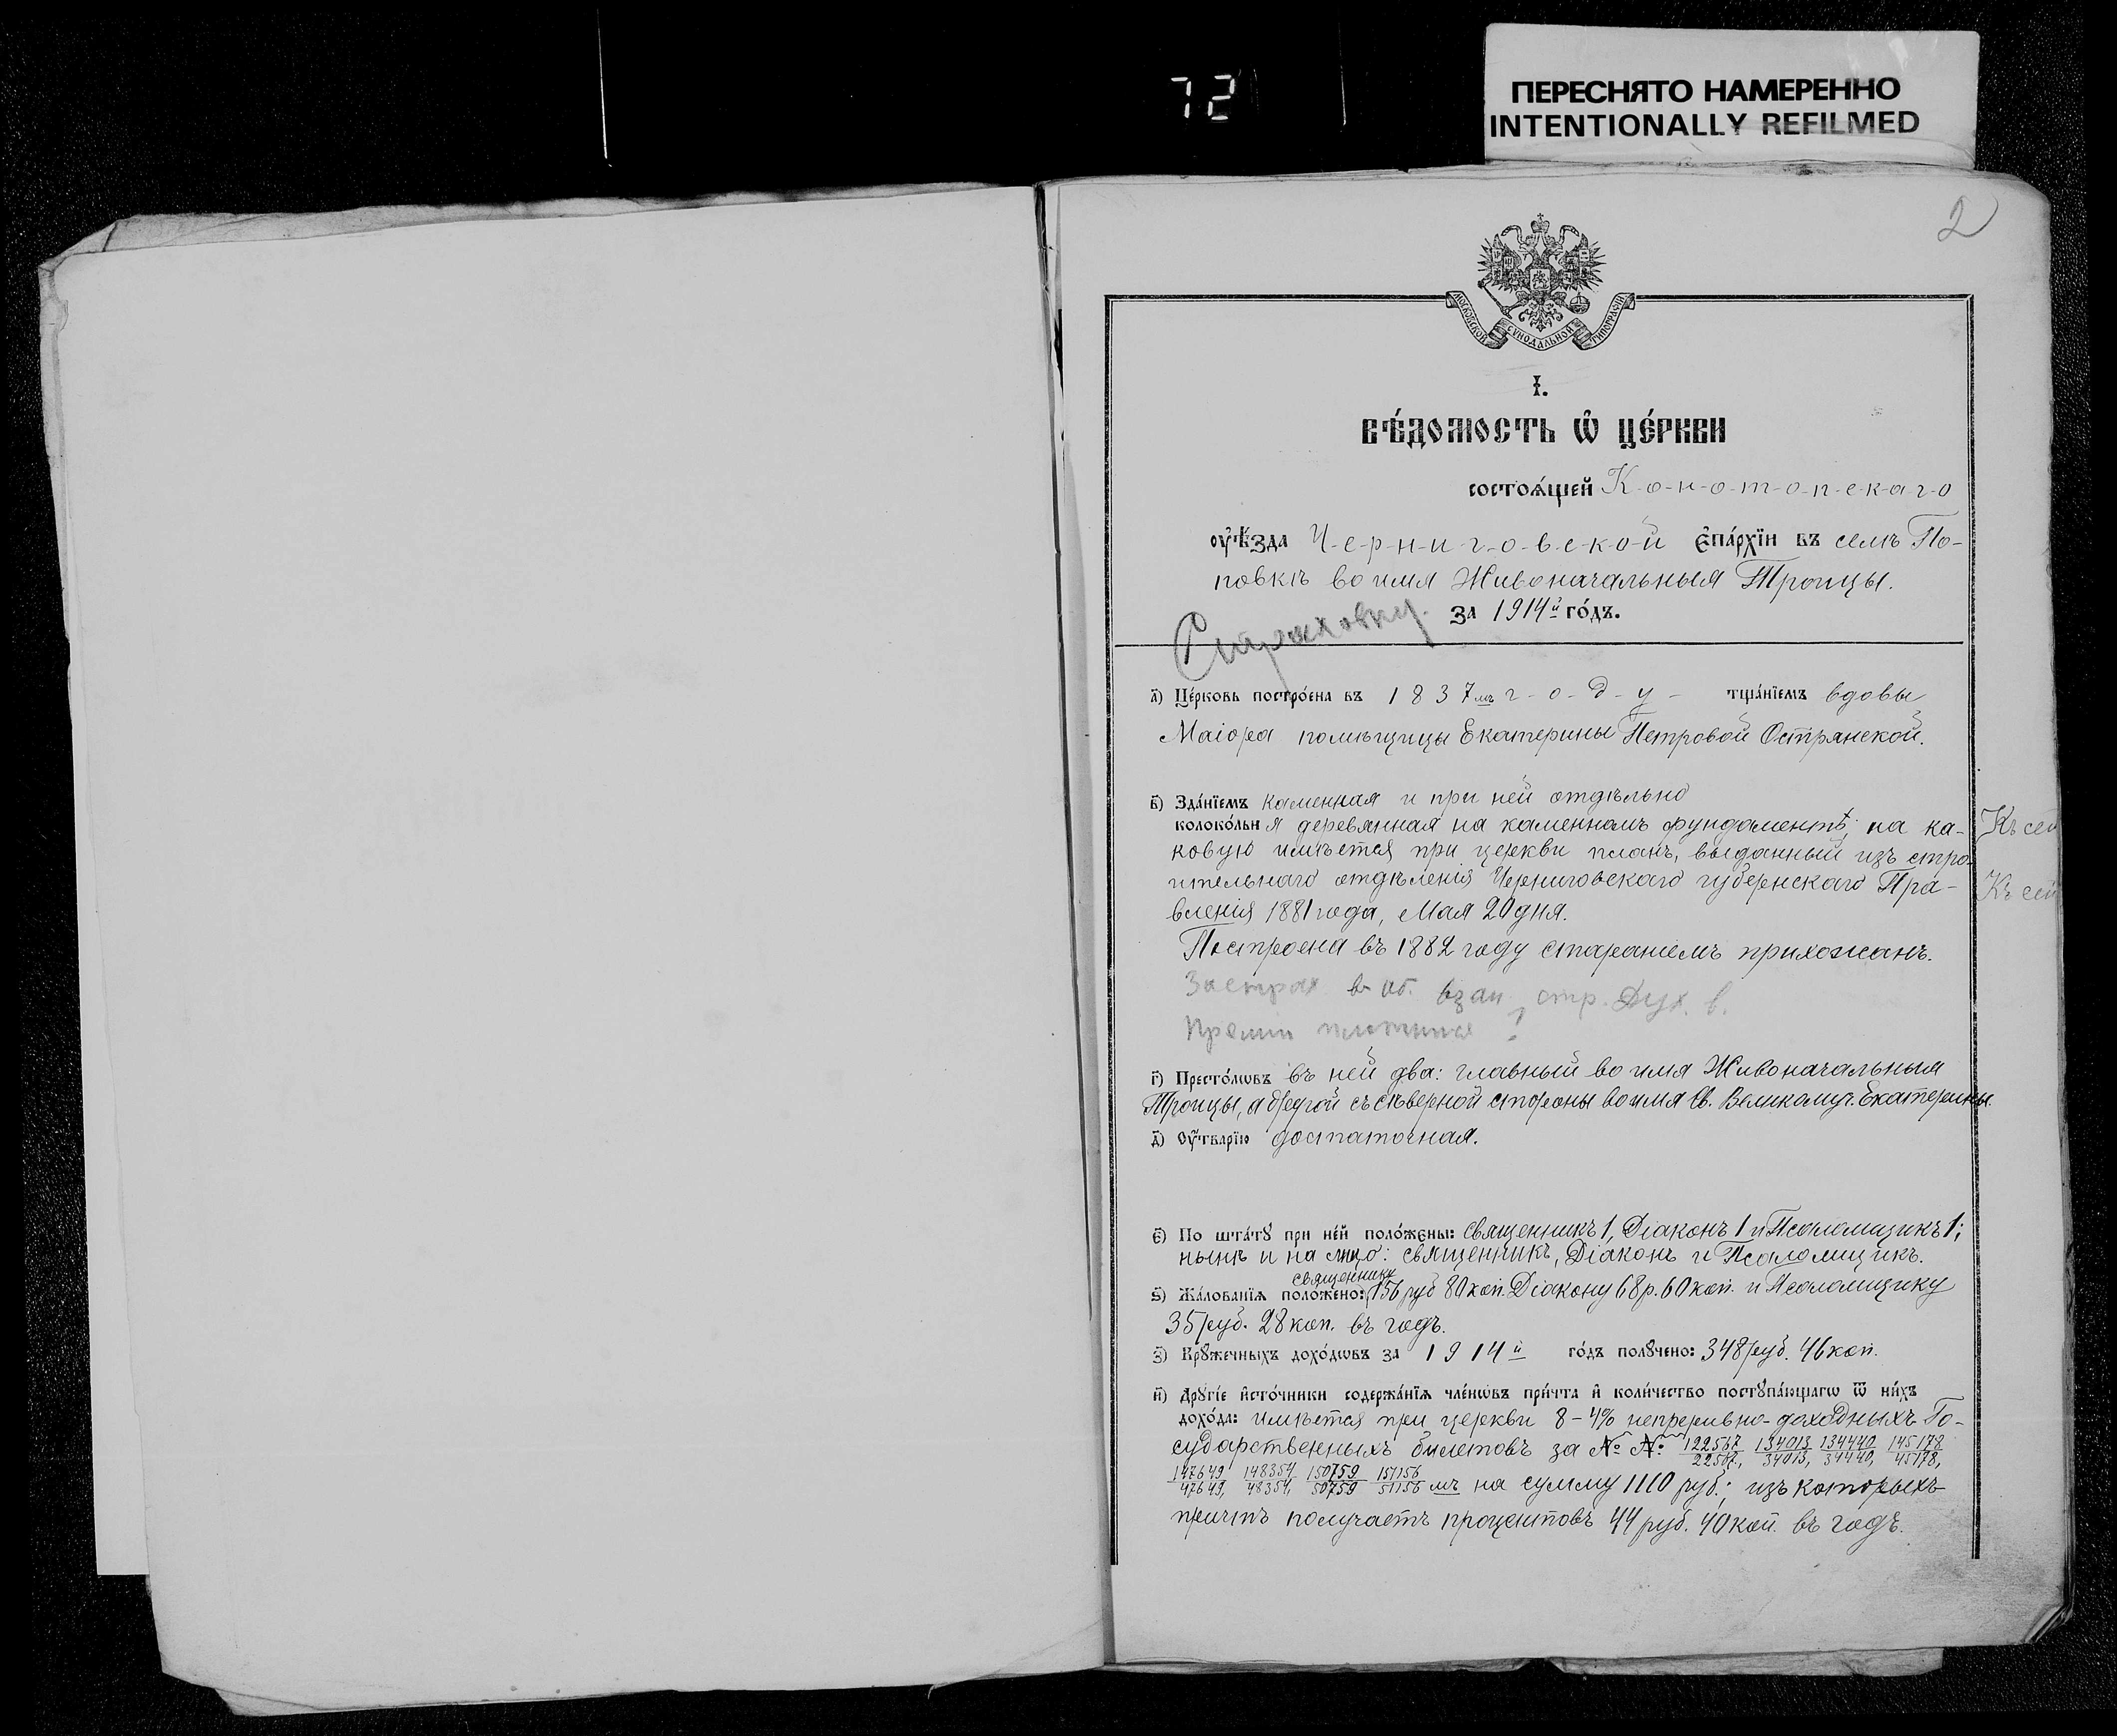 72
ПЕРЕСНЯТО НАМЕРЕННО
INTENTIONALLY REFILMED
2
МОСКОВСКОЙ СѴНОДАЛЬНОЙ ТИПОГРАФІИ
І.
ВѢ́ДОМОСТЬ Ѽ ЦЕ́РКВИ
состоѧ́щей К-о-н-о-т-о-п-с-к-а-г-о
ᲂу҆ѣ́зда Ч-е-р-н-и-г-о-в-с-к-о-й є҆па́рхїи въ селѣ По-
повкѣ во имя Живоначальныя Троицы.
за 1914й го́дъ.
Страховку.
а҃) Це́рковь постро́ена въ 1837мъ г-о-д-у- тща́нїемъ вдовы
Маіора помѣщицы Екатерины Петровой Острянской.
в҃) Зда́нїемъ каменная и при ней отдѣльно
колоко́льня деревянная на каменномъ фундаментѣ, на ка-
ковую имѣется при церкви планъ, выданный изъ стро-
ительнаго отдѣленія Черниговскаго губернскаго Пра-
вленія 1881 года, Мая 20 дня.
Къ сей
Къ сей
Построена въ 1882 году стараніемъ прихожанъ.
Застрах. в. взаи. стр. Дух. в.
г҃) Престо́лѡвъ въ ней два: главный во имя Живоначальныя
Троицы, а другой съ сѣверной стороны во имя Св. Великомуч. Екатерины.
д҃) Оу҆́тварїю достаточная.
є҃) По шта́тꙋ при не́й поло́жены: священникъ 1, Діаконъ 1 и Псаломщикъ 1;
нынѣ и на лицо: священникъ, Діаконъ и Псаломщикъ.
ѕ҃) Жа́лованїѧ поло́жено: священнику 156 руб 80 коп. Діакону 68 р. 60 коп. и Псаломщику
35 руб. 28 коп. въ годъ.
з҃) Крꙋ́жечныхъ дохо́дѡвъ за 1914й го́дъ полꙋ́чено: 348 руб. 46 коп.
и҃) Дрꙋгі́е и҆сто́чники содержа́нїѧ чле́нѡвъ при́чта и҆ коли́чество постꙋпа́ющагѡ ѿ ни́хъ
дохо́да: имѣется при церкви 8-4% непрерывно-доходныхъ Го-
сударственныхъ билетовъ за №№: 122567/22567, 134013/34013, 134440/34440, 145178/45178,
147649/47649, 148354/48354, 150759/50759 151156/51156 мъ на сумму 1110 руб.; изъ которыхъ
причтъ получаетъ процентовъ 44 руб. 40 коп. въ годъ.